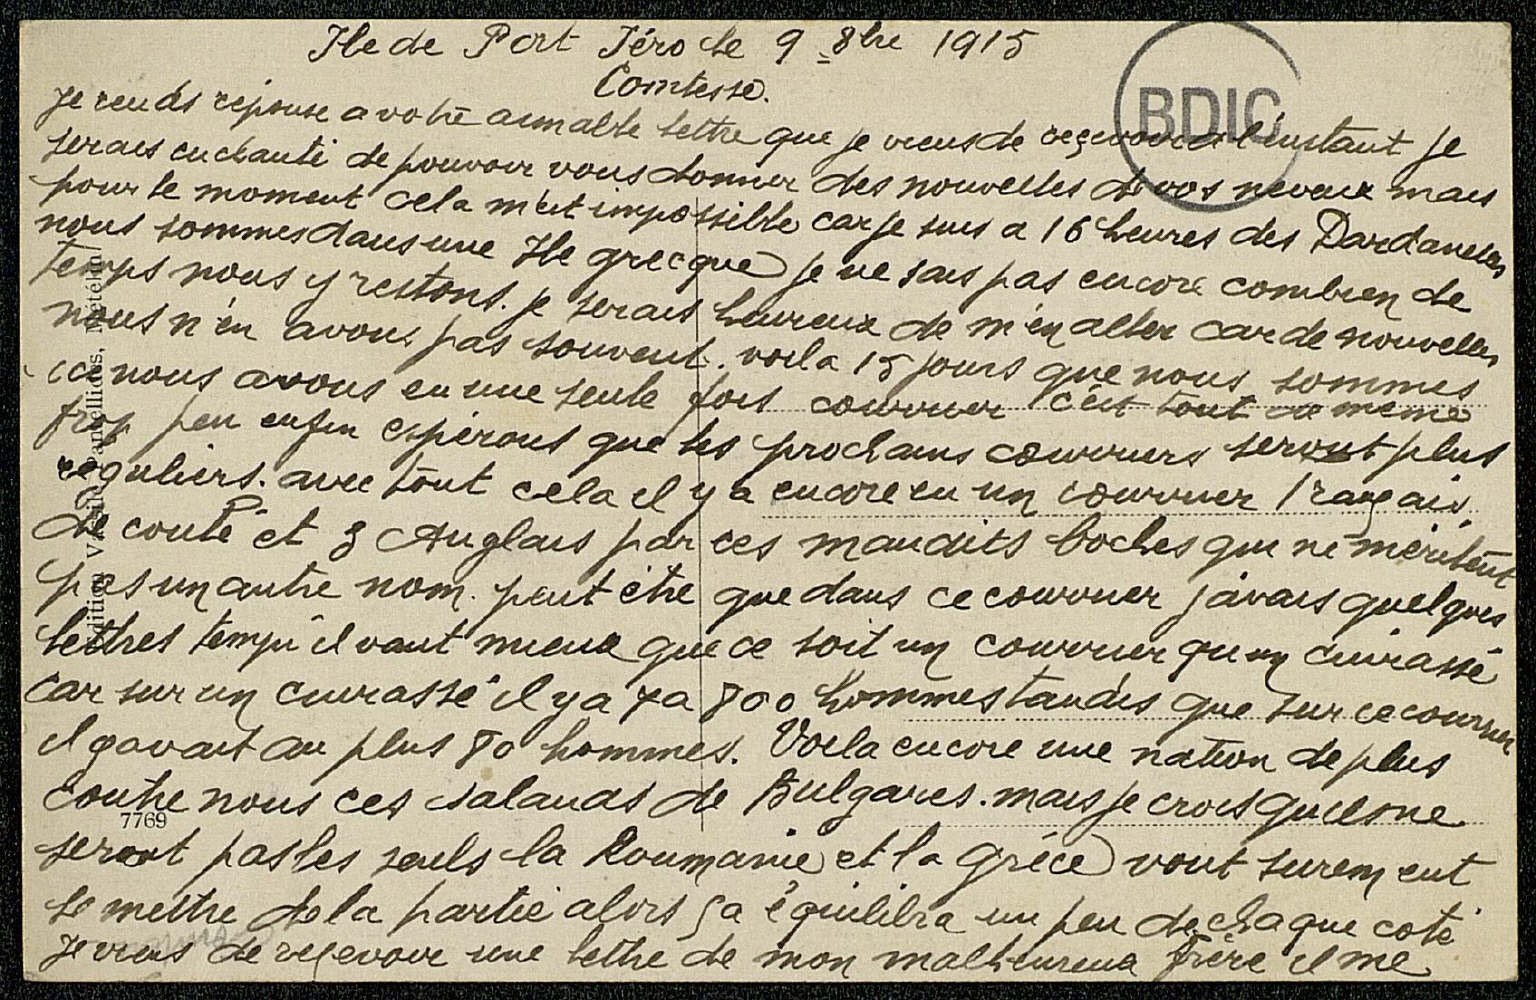 Ile de Port Iéro le 9 8bre 1915
Comtesse.
BDIC
je rends réponse a votre aimable lettre que je viens de reçevoir a l'instant je
serais enchanté de pouvoir vous donner des nouvelles de vos neveux mais
pour le moment cela m'est impossible car je suis a 16 heures des Dardanelles
nous sommes dans une Ile grecque je ne sais pas encore combien de
temps nous y restons. je serais heureux de m'en aller car de nouvelles
nous n'en avons pas souvent. voila 15 jours que nous sommes
ici nous avons eu une seule fois courrier c'est tout de même
trop peu enfin espérons que les prochains courriers seront plus
reguliers. avec tout cela il y a encore eu un courrier français
de coulé et 3 Anglais par ces maudits boches qui ne méritent
pas un autre nom. peut être que dans ce courrier j'avais quelques
lettres il vaut mieux que ce soit un courrier qu'un cuirassé
car sur un cuirassé il y a 7 a 800 hommes tandis que sur ce courrier
il y avait au plus 80 hommes. Voila encore une nation de plus
contre nous ces salauds de Bulgares. mais je crois qu'ils ne
7769
seront pas les seuls la Roumanie et la Grèce vont surement
se mettre de la partie alors ça équilibra un peu de chaque coté
Je viens de reçevoir une lettre de mon malheureux frère il me